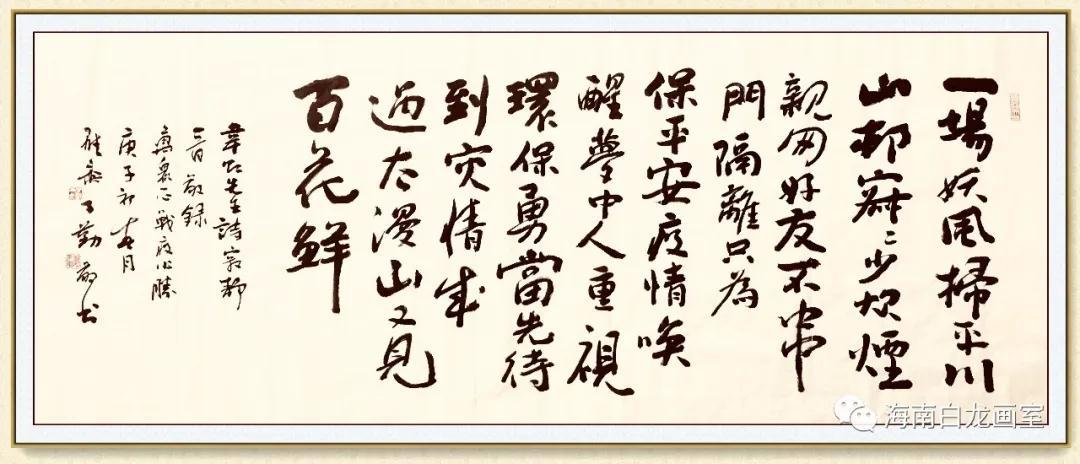 一場妖風掃平川
山邨寂々少炊煙
親朋好友不串
門隔離只為
保平安疫情喚
醒夢中人重視
環保勇當先待
到灾情成
過去漫山又見
百花鮮
先生詩寂靜
敬録
萬眾一心戰疫必勝
庚子初春月
勤敬书
海南白龙画室